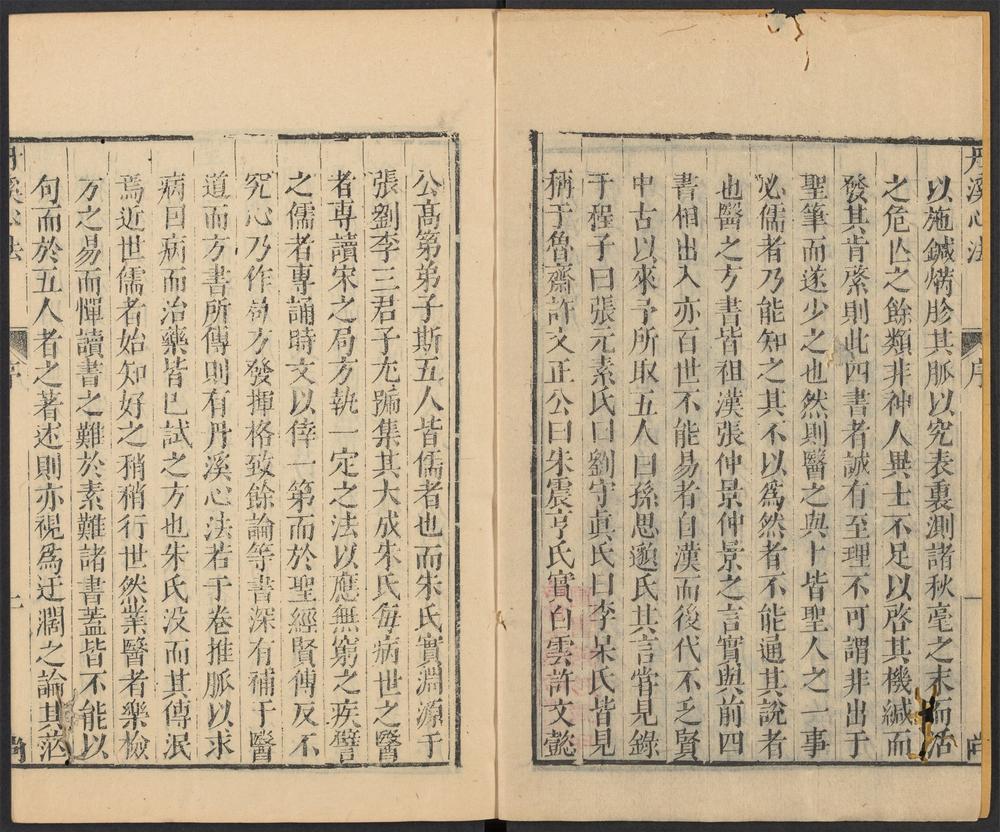 丹溪心法 序 一
以施鍼焫胗其脈以究表裏測諸秋亳之末而活
之危亾之餘類非神人異士不足以啓其機緘而
發其肯綮則此四書者誠有至理不可謂非出于
聖筆而遂少之也然則醫之與卜皆聖人之一事
必儒者乃能知之其不以爲然者不能通其說者
也醫之方書皆祖漢張仲景仲景之言實與前四
書相出入亦百世不能易者自漢而後代不乏賢
中古以來予所取五人曰孫思邈氏其言嘗見錄
于程子曰張元素氏曰劉守眞氏曰李杲氏皆見
稱于魯齋許文正公曰朱震亨氏實白雲許文懿
公高第弟子斯五人皆儒者也而朱氏實淵源于
張劉李三君子尤號集其大成朱氏每病世之醫
者專讀宋之局方執一定之法以應無窮之疾譬
之儒者專誦時文以倖一第而於聖經賢傳反不
究心乃作局方發揮格致餘論等書深有補于醫
道而方書所傳則有丹溪心法若干卷推脈以求
病因病而治藥皆已試之方也朱氏没而其傳泯
焉近世儒者始知好之稍稍行世然業醫者樂檢
方之易而憚讀書之難於素難諸書蓋皆不能以
句而於五人者之著述則亦視爲迂濶之論其茫
丹溪心法 序 二 尚